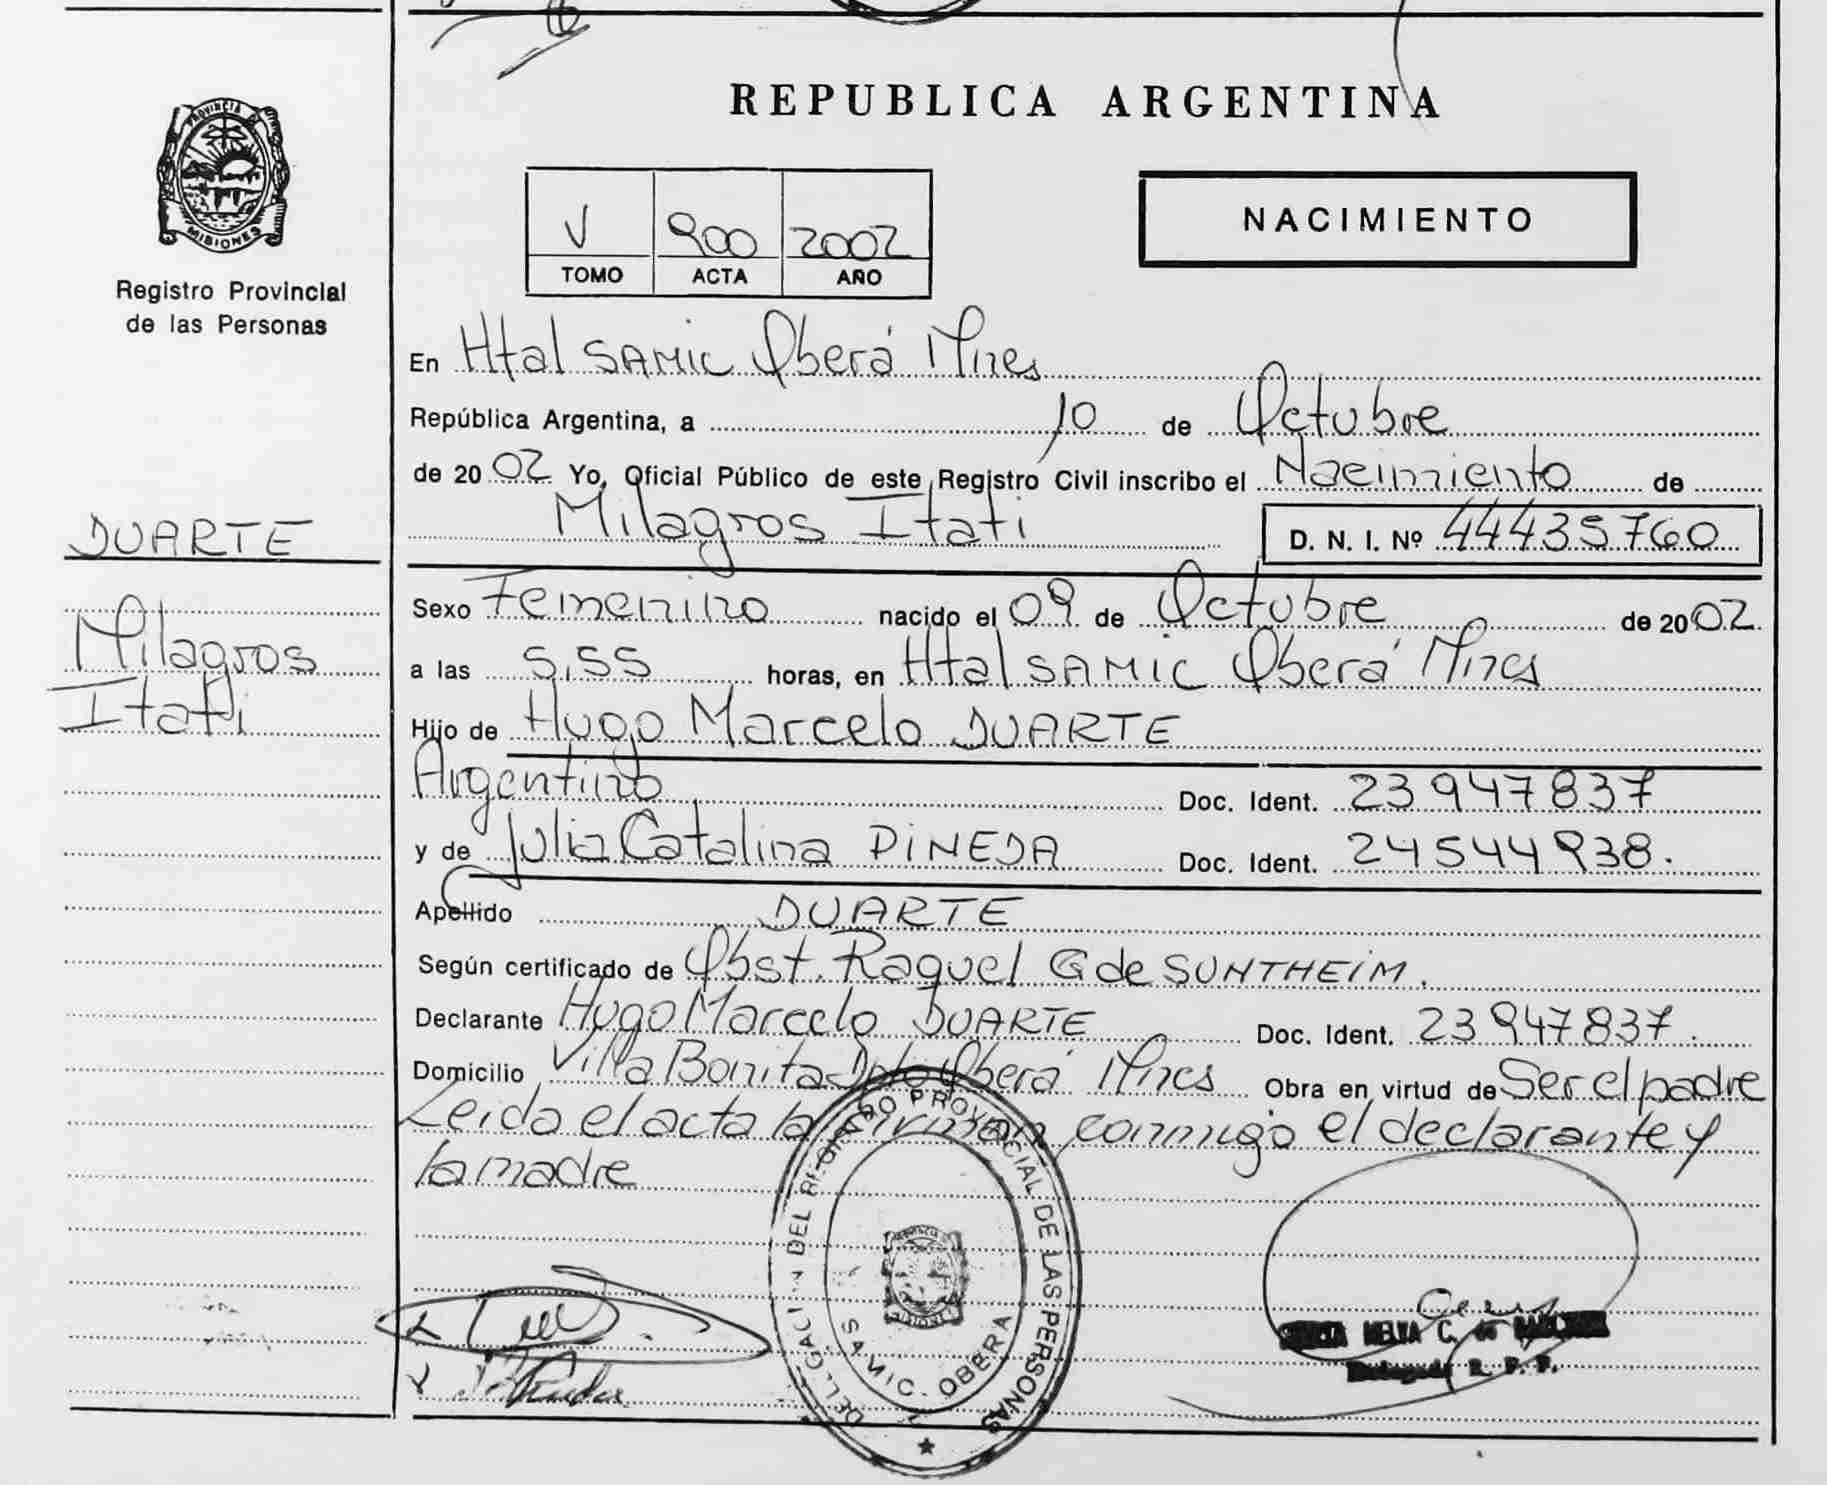 REPUBLICA ARGENTINA
PROVINCIA DE
MISIONES
Registro Provincial
de las Personas
V 900 2002
TOMO ACTA AÑO
NACIMIENTO
En Htal SAMIC Oberá Mnes
República Argentina, a 10 de Octubre
de 2002 Yo, Oficial Público de este Registro Civil inscribo el Nacimiento de
Milagros Itatí D. N. I. Nº 44435760
DUARTE
Milagros
Itatí
Sexo Femenino nacido el 09 de Octubre de 2002
a las 5,55 horas, en Htal SAMIC Oberá Mnes
Hijo de Hugo Marcelo DUARTE
Argentino Doc. Ident. 23947837
y de Julia Catalina PINEDA Doc. Ident. 24544938.
Apellido DUARTE
Según certificado de Obst. Raquel G de SUNTHEIM.
Declarante Hugo Marcelo DUARTE Doc. Ident. 23947837.
Domicilio Villa Bonita Dpto Oberá Mnes Obra en virtud de Ser el padre
Leida el acta la firman conmigo el declarante y
la madre
DELEGACION DEL REGISTRO PROVINCIAL DE LAS PERSONAS
SAMIC. OBERA
C. de
R. P. P.